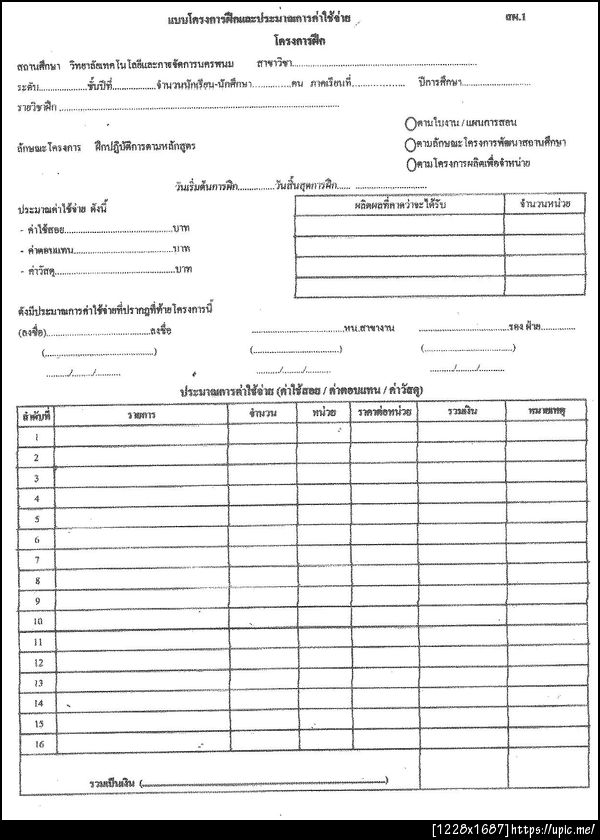 แบบโครงการฝึกและประมาณการค่าใช้จ่าย สผ.1
โครงการฝึก
สถานศึกษา วิทยาลัยเทคโนโลยีและการจัดการนครพนม สาขาวิชา..........
ระดับ..........ชั้นปีที่..........จำนวนนักเรียน-นักศึกษา..........คน ภาคเรียนที่.......... ปีการศึกษา..........
รายวิชาฝึก..........
ตามใบงาน / แผนการสอน
ลักษณะโครงการ ฝึกปฏิบัติการตามหลักสูตร ตามลักษณะโครงการพัฒนาสถานศึกษา
ตามโครงการผลิตเพื่อจำหน่าย
วันเริ่มต้นการฝึก..........วันสิ้นสุดการฝึก..........
ประมาณค่าใช้จ่าย ดังนี้ ผลิตผลที่คาดว่าจะได้รับ จำนวนหน่วย
- ค่าใช้สอย..........บาท
- ค่าตอบแทน..........บาท
- ค่าวัสดุ..........บาท
ดังมีประมาณการค่าใช้จ่ายที่ปรากฎที่ท้ายโครงการนี้
(ลงชื่อ)..........ลงชื่อ ..........หน.สาขางาน ..........รอง ฝ่าย..........
(..........) (..........) (..........)
......../......../........ ......../......../........ ......../......../........
ประมาณการค่าใช้จ่าย (ค่าใช้สอย / ค่าตอบแทน / ค่าวัสดุ)
ลำดับที่ รายการ จำนวน หน่วย ราคาต่อหน่วย รวมเงิน หมายเหตุ
1
2
3
4
5
6
7
8
9
10
11
12
13
14
15
16
รวมเป็นเงิน (..........)
[1228x1687]https://upic.me/